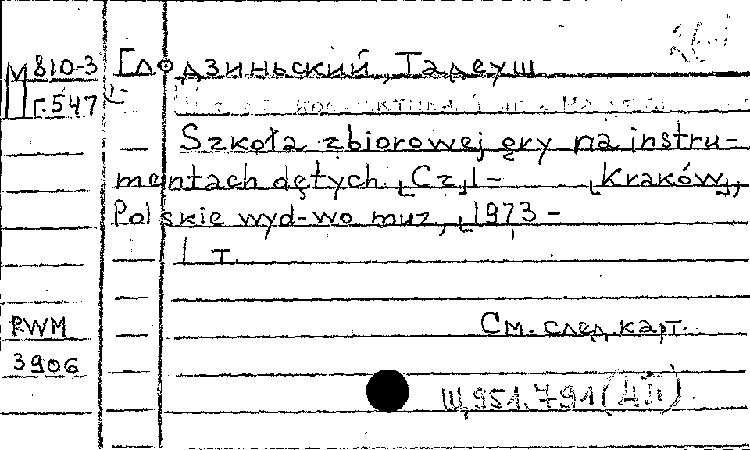 М 810-3 Глодзиньский, Тадеуш
Г.547
Szkoła zbiorowej gry na instru-
mentach dętych. [Cz.] 1- [Kraków],
Polskie wyd-wo muz., [1973-
1 т.
PWM См. след. карт.
3906
Щ951.791 (4П)